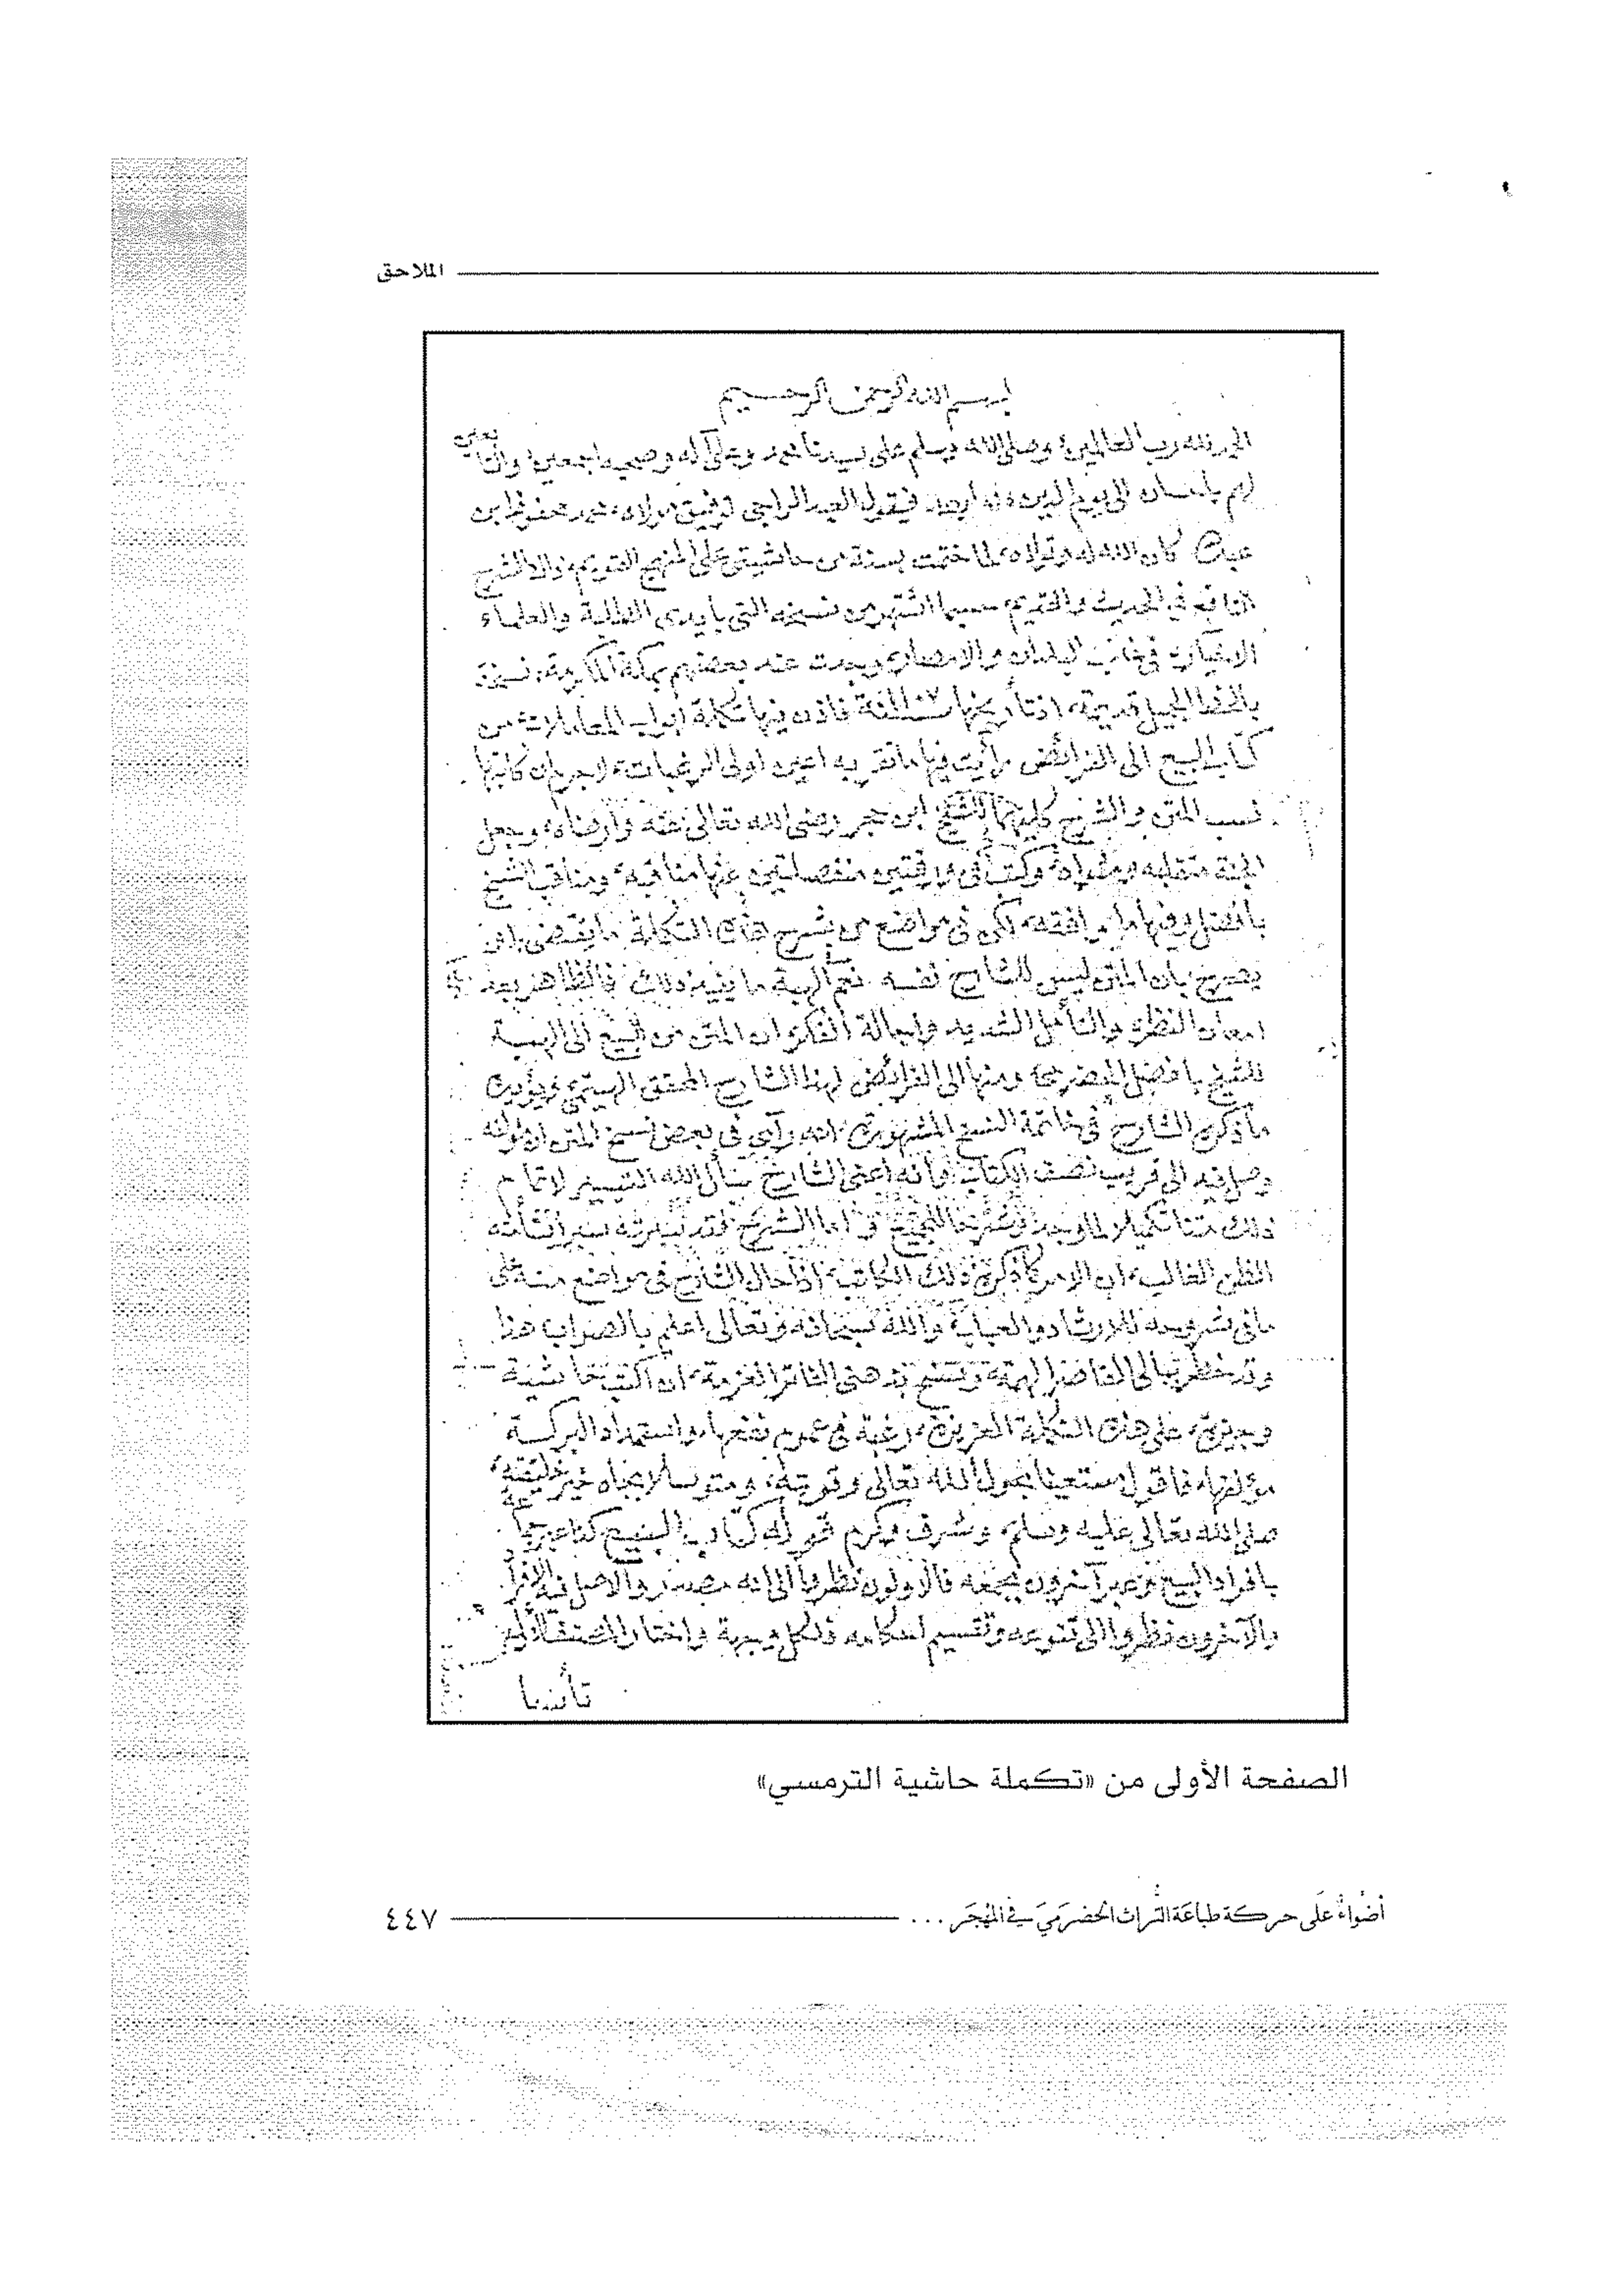 الملاحق
بسم الله الرحمن الرحيم
الحمد لله رب العالمين وصلى الله وسلم على سيدنا محمد وعلى آله وصحبه اجمعين والتابعين
لهم باحسان الى يوم الدين فيقول العبد الراجي توفيق مولاه محمد محفوظ ابن
عبد الله كان الله له وتولاه لما ختمت بسنة من حاشيتي على المنهج القويم
النافع في الحديث والقديم حسبما اشتهر من نسخه التي بأيدي الطلبة والعلماء
الاخيار في غالب البلدان والامصار وجدت عند بعضهم بمكة المكرمة نسخة
بالخط الجميل قديمة اذ تأريخها فاذن فيها تكملة أبواب المعاملات من
كتاب البيع الى الفرائض رأيت فيها ما تقر به اعين اولى الرغبات كاتبها
نسب المتن والشرح كليهما للشيخ ابن حجر رضي الله تعالى عنه وأرضاه وجعل
الجنة متقلبه ومثواه وكتب في ورقتين منفصلتين عنها مناقبه ومناقب الشيخ
بافضل وفيها ما يوافقه لكن في مواضع من شرح هذه التكملة ما يقتضي
يصرح بان المتن ليس للشارح نفسه نعم في الهبة ما يفيد ذلك فالظاهر بعد
امعان النظر والتأمل الشديد واجالة الفكر ان المتن من البيع الى الهبة
للشيخ بافضل الحضرمي ومنها الى الفرائض لهذا الشارح المحقق الهيتمي ويؤيده
ما ذكره الشارح في خاتمة النسخ المشهورة انه رأى في بعض نسخ المتن ان مؤلفه
وصل فيه الى قريب نصف الكتاب وأنه اعنى الشارح سأل الله التيسير لاتمام
ذلك متنا تكميلا لما وجد وشرحا للجميع اما الشرح
الظن الغالب ان الامر كما ذكره ذلك الكاتب اذ احال الشارح في مواضع منه على
ما في شرحيه للارشاد والعباب والله سبحانه وتعالى اعلم بالصواب هذا
وقد خطر ببالي القاصر الهمة بذهني الفاتر العزمة ان اكتب حاشية
وجيزة على هذه التكملة العزيزة رغبة في عموم نفعها واستمداد البركة
مؤلفها فاقول مستعينا بحول الله تعالى وقوته ومتوسلا بجاه خير خليقته
صلى الله تعالى عليه وسلم وشرف وكرم قوله كتاب البيع كذا عبر
بافراد البيع وعبر آخرون بجمعه فالاولون نظروا الى انه مصدر والاصل فيه الافراد
والآخرون نظروا الى تنوعه وتقسيم احكامه ولكل وجهة واختار المصنف الاول
تأسيا
الصفحة الأولى من «تكملة حاشية الترمسي»
أضواء على حركة طباعة التراث الحضرمي في المهجر ... ٤٤٧